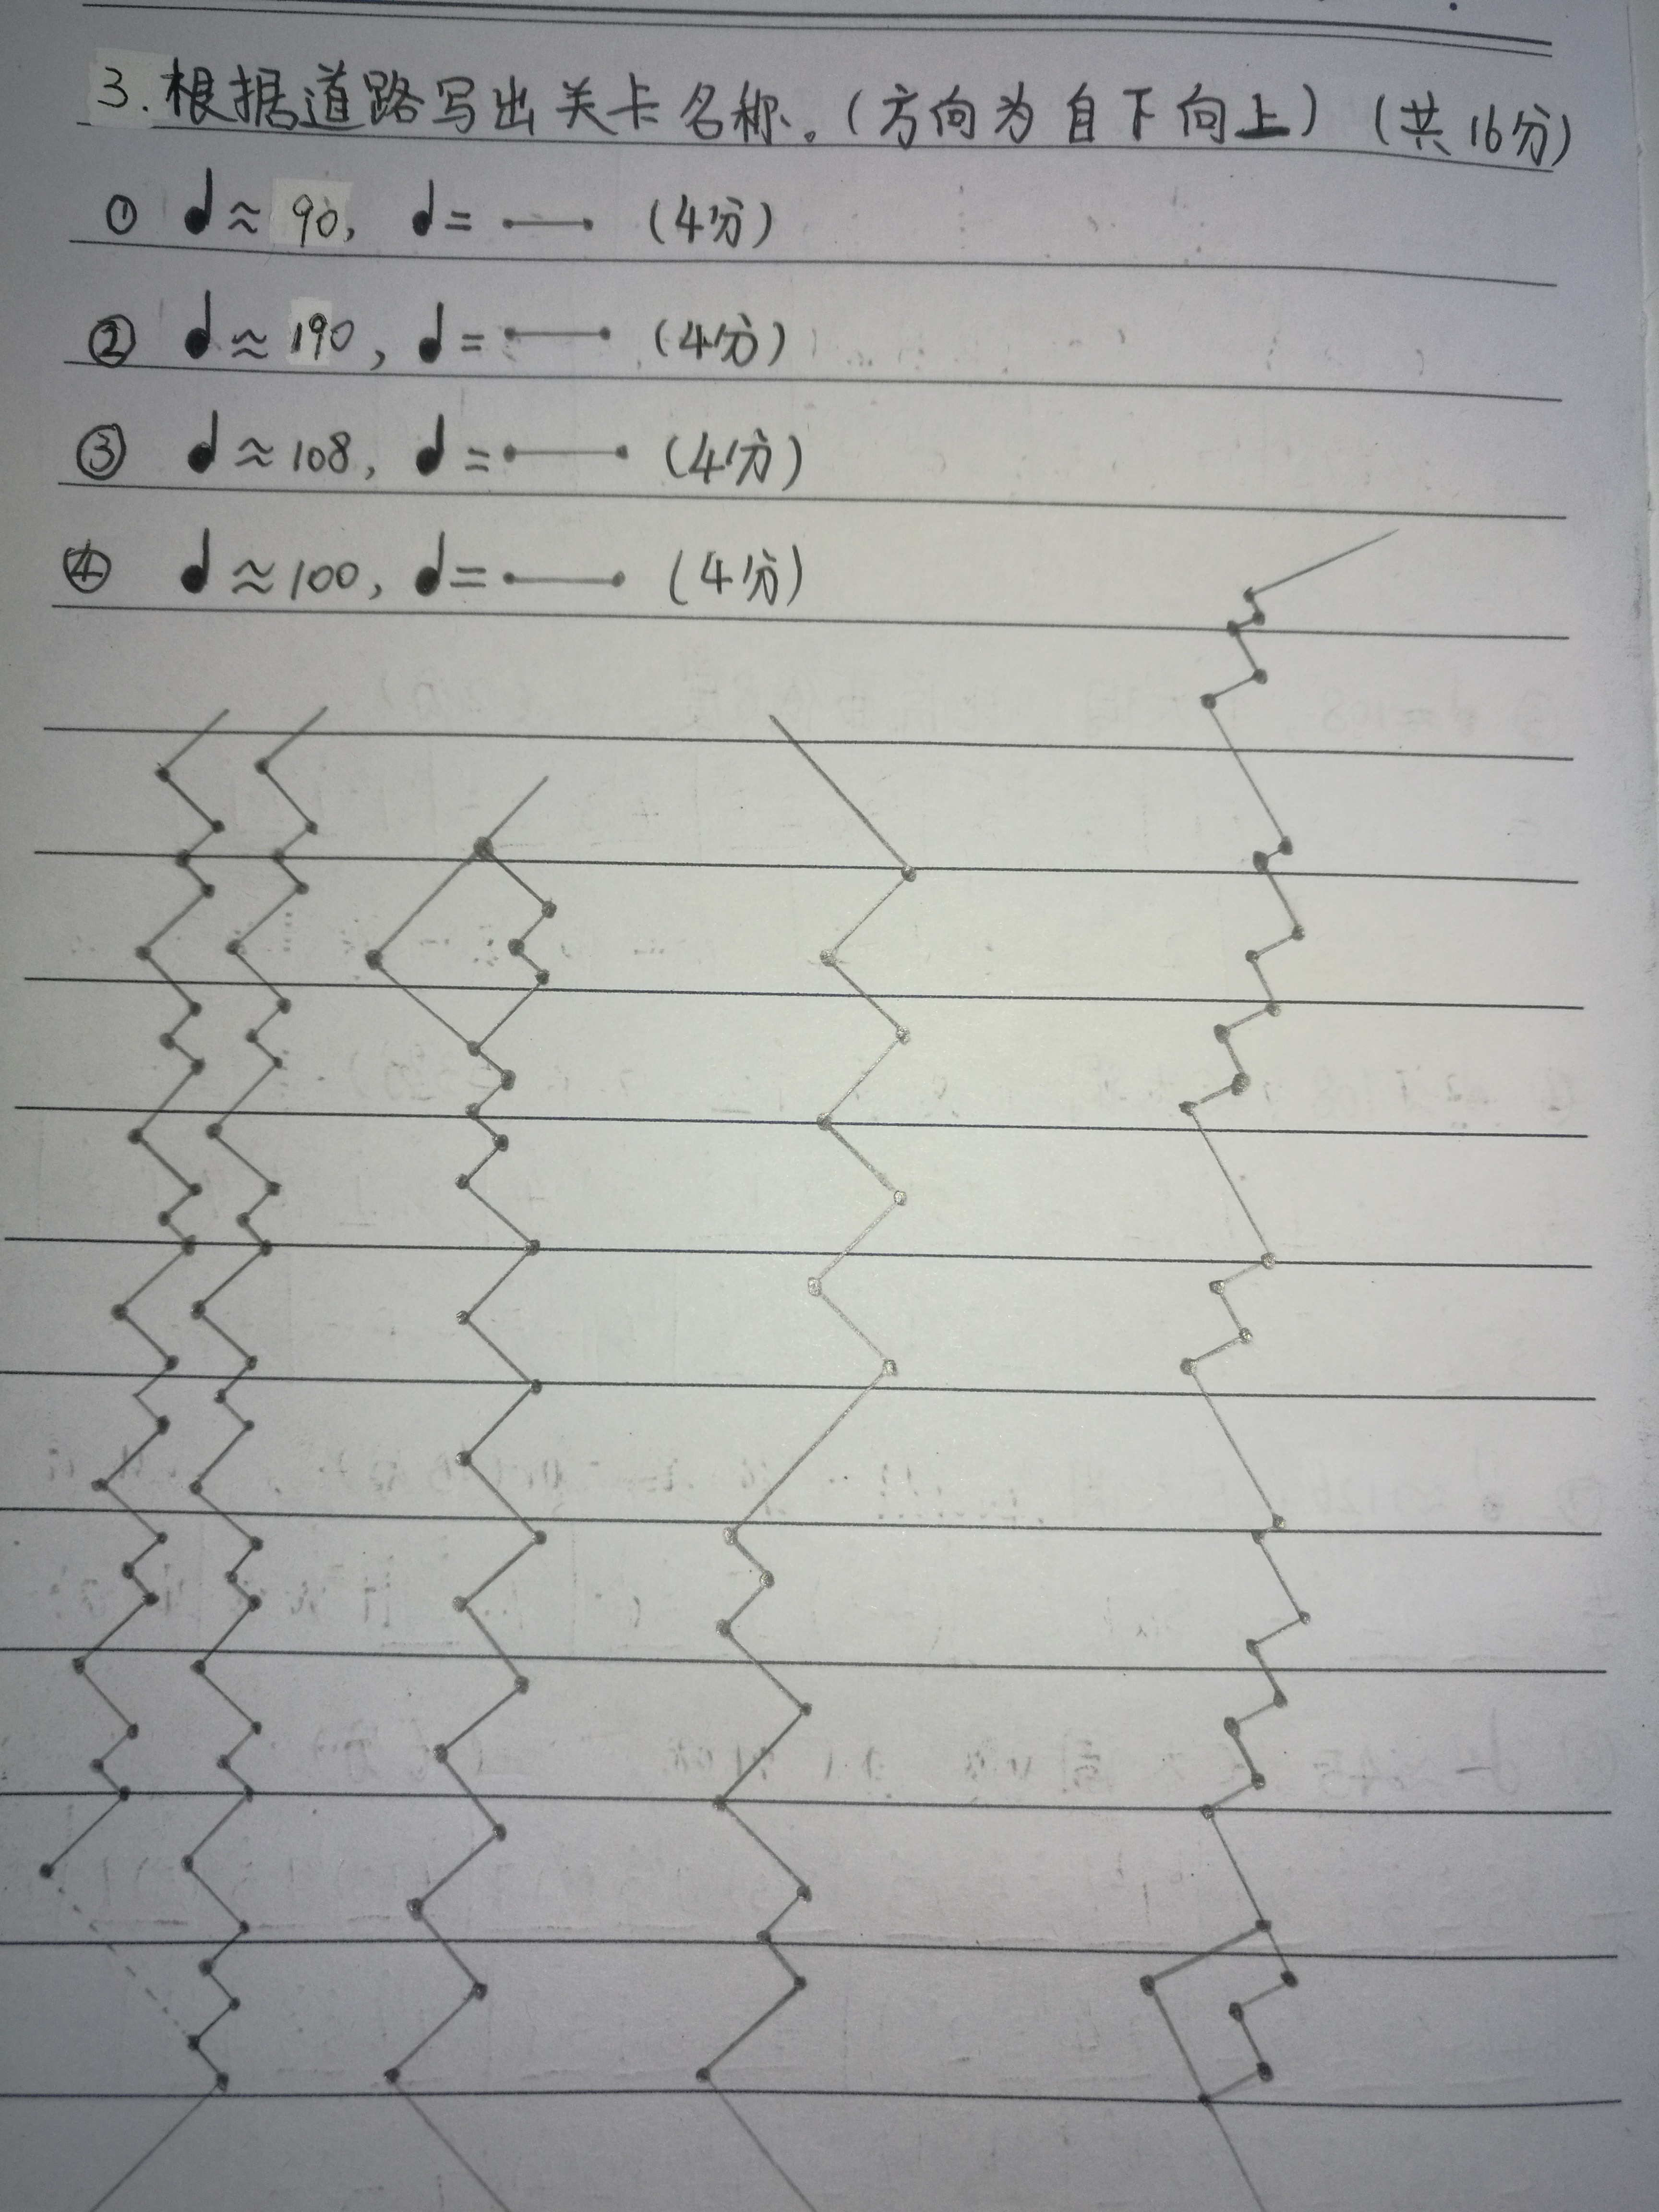 3. 根据道路写出关卡名称。(方向为自下向上) (共16分)
① ♩≈90, ♩= (4分)
② ♩≈190, ♩= (4分)
③ ♩≈108, ♩= (4分)
④ ♩≈100, ♩= (4分)